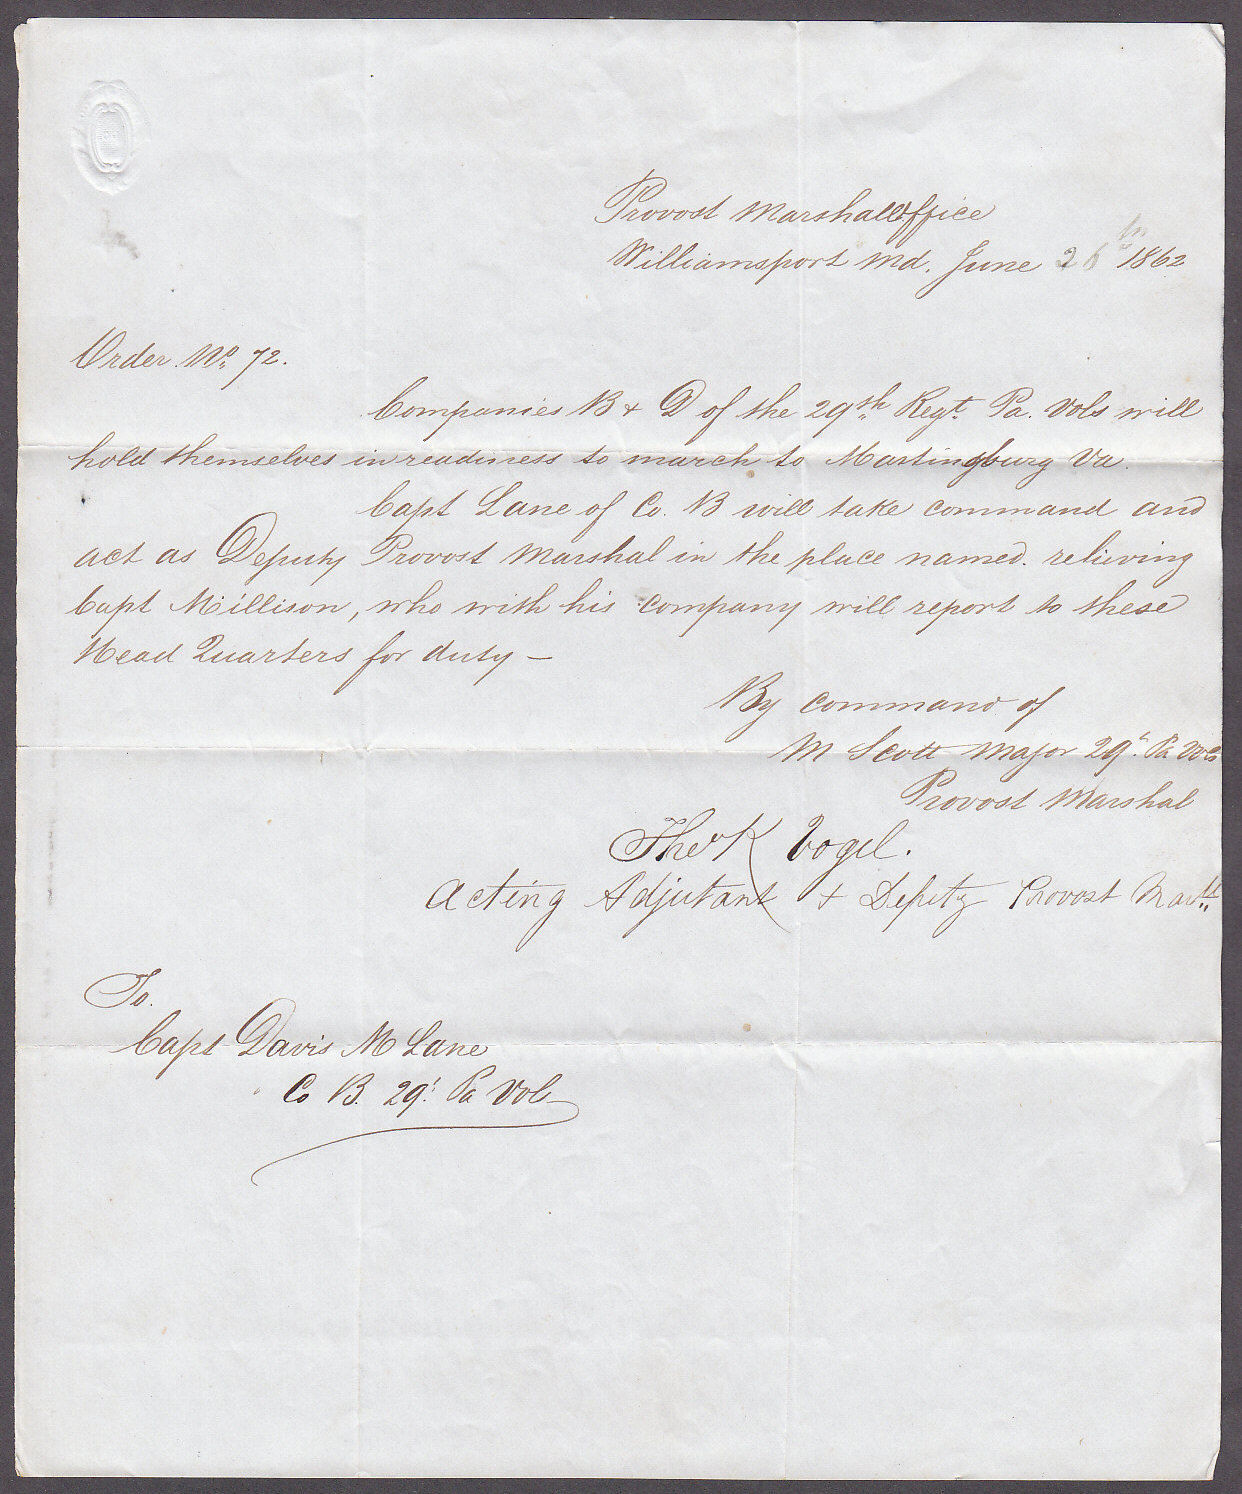 Provost Marshall Office
Williamsport Md. June 26th 1862
Order No. 72.
Companies B & D of the 29th Regt. Pa. Vols will
hold themselves in readiness to march to Martinsburg Va.
Capt Lane of Co. B will take command and
act as Deputy Provost Marshal in the place named. relieving
Capt Millison, who with his company will report to these
Head Quarters for duty —
By command of
M Scott Major 29th Pa Vols
Provost Marshal
Theo K Vogel.
Acting Adjutant & Deputy Provost Marsl.
To.
Capt Davis M Lane
Co B. 29' Pa Vol